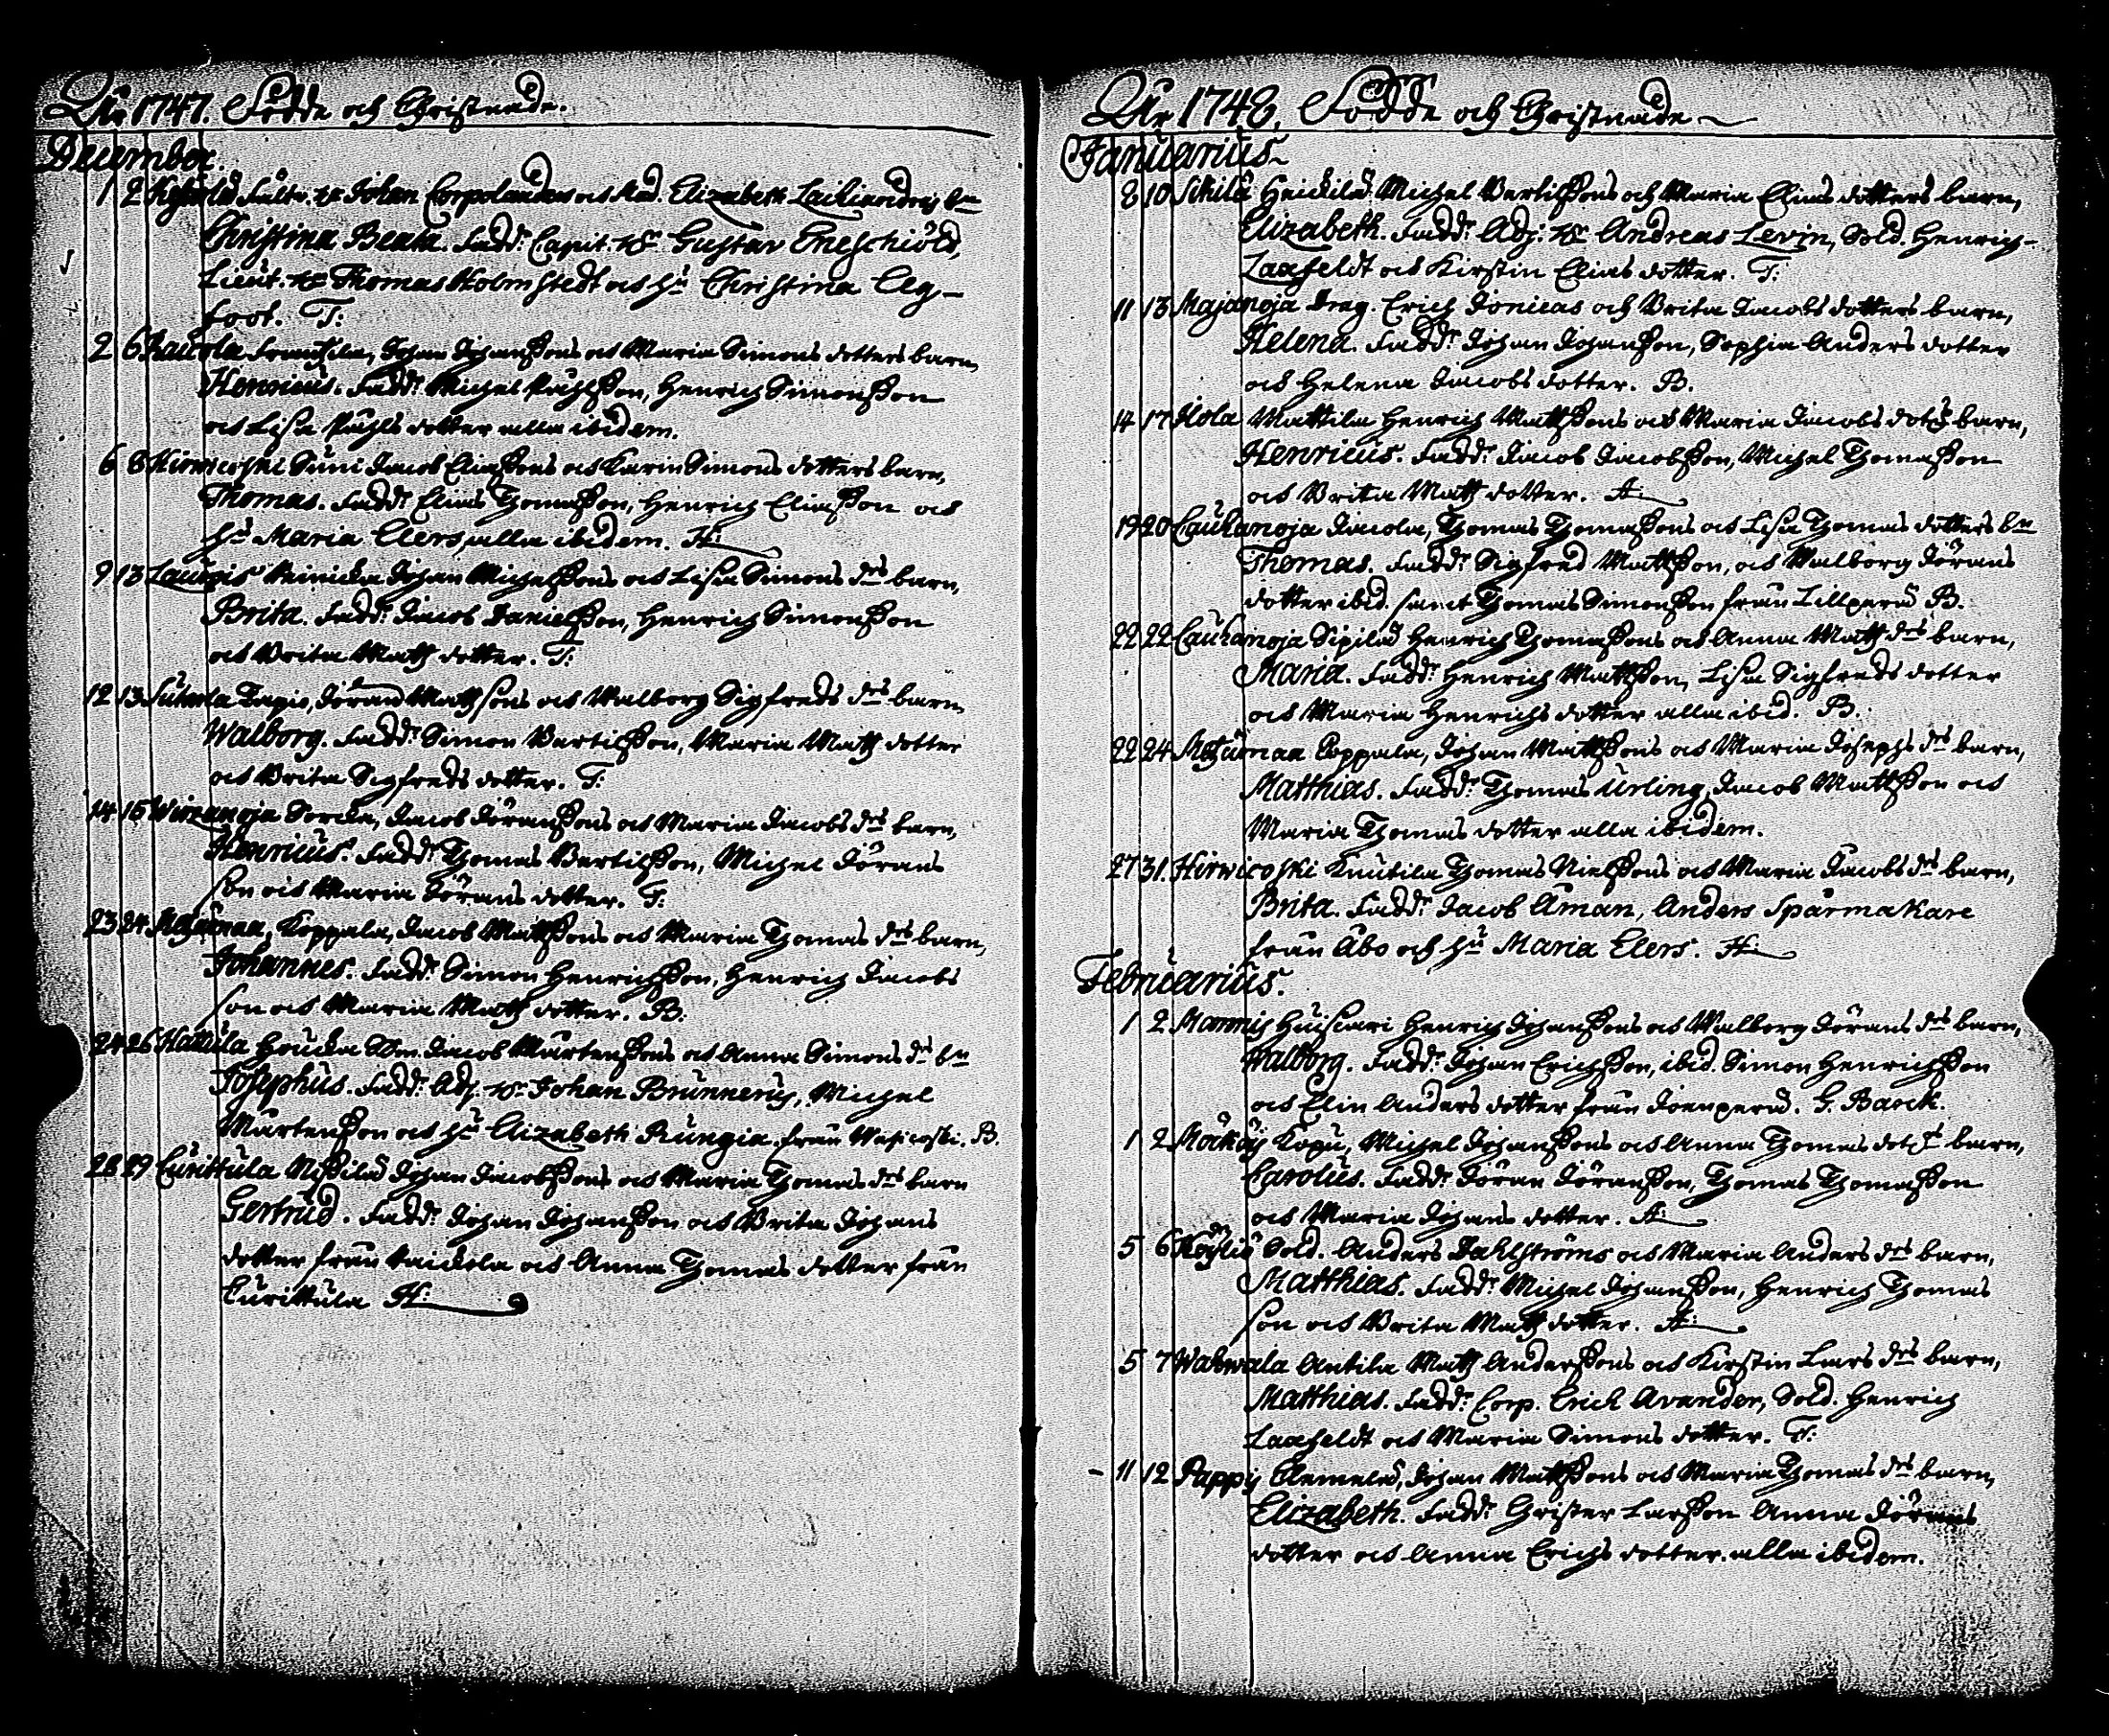 Åhr 1747. Födde och Christnade.
December.
1 2 Fältv. Hr Johan Corpolander och Mad. Elizabeth bn
Christina Beata. Fadd: Capit. Hr Gustav Eneschiöld,
Lieut. Hr Thomas Holmstedt och hu Christina Leg-
foot. T:
2 6 Raukola Franssila, Johan Johanssons och Maria Simons dotters barn,
Henricus. Fadd: Michel Påhlsson, Henrich Simonsson
och Lisa Påhls dotter alla ibidem.
6 8 Hirvicoski Suni Jacob Eliassons och Karin Simons dotters barn,
Thomas. Fadd: Elias Thomasson, Henrich Eliasson och
hu Maria Elers, alla ibidem. H:
9 13 Laurois Heinicka Johan Michelssons och Lisa Simons drs barn,
Brita. Fadd: Jacob Danielsson, Henrich Simonsson
och Brita Matts dotter. T:
12 13 Sukula Tapio, Jöran Mattssons och Walborg Sigfreds drs barn
Walborg. Fadd: Simon Bertilsson, Maria Matts dotter
och Brita Sigfreds dotter. T:
14 15 Wirzanoja Sorcka, Jacob Jöranssons och Maria Jacobs drs barn,
Henricus. Fadd: Thomas Bertilsson, Michel Jörans
son och Maria Jörans dotter. T:
23 24 Metzämaa, Koppala, Jacob Mattssons och Maria Thomas drs barn,
Johannes. Fadd: Simon Henrichsson, Henrich Jacobs
son och Maria Matts dotter. B:
24 26 Hattula Houcka Jacob Mårtenssons och Anna Simons dr bn
Josephus. Fadd: Adj. Hr Johan Brunnerus, Michel
Mårtensson och hu Elizabeth Rungia från Wesicoski. B.
28 29 Curittula Nissilä Johan Jacobssons och Maria Thomas drs barn
Gertrud. Fadd: Johan Johansson och Brita Johans
dotter från och Anna Thomas dotter från
Curittula H:
Åhr 1748. Födde och Christnade
Januarius
8 10 Skilä Heickilä Michel Bertilssons och Maria Elias dotters barn,
Elizabeth. Fadd: Adj. Hr Andreas Levin, Sold. Henrich
Laxfeldt och Kirstin Elias dotter. T:
11 13 Majanoja Drag. Erich Jonieas och Brita Jacobs dotters barn,
Helena. Fadd: Johan Johansson, Sophia Anders dotter
och Helena Jacobs dotter. B.
14 17 Hola Mattila Henrich Mattssons och Maria Jacobs dotrs barn,
Henricus. Fadd: Jacob Jacobsson, Michel Thomasson
och Brita Matts dotter. H:
19 20 Cauhanoja Jacola, Thomas Thomassons och Lisa Thomas dotters bn
Thomas. Fadd: Sigfred Mattsson, och Walborg Jörans
dotter ibid. samt Thomas Simonsson från Lillperä B.
22 22 Cauhanoja Sipilä Henrich Thomassons och Anna Matts drs barn,
Maria. Fadd: Henrich Mattsson, Lisa Sigfreds dotter
och Maria Henrichs dotter alla ibid. B.
22 24 Metzämaa Koppala, Johan Mattssons och Maria Josephs drs barn,
Matthias. Fadd: Thomas Urling, Jacob Mattsson och
Maria Thomas dotter alla ibidem.
27 31. Hirvicoski Knutila Thomas Nielssons och Maria Jacobs drs barn,
Brita. Fadd: Jacob Åman, Anders Spårmakare
från Åbo och hu Maria Elers. H:
Februarius.
1 2 Mommis Huiscari Henrich Johanssons och Walborg Jörans drs barn,
Walborg. Fadd: Johan Erichsson, ibid. Simon Henrichsson
och Elin Anders dotter från Joenperä. G. Baeck.
1 2 Köpu, Michel Johanssons och Anna Thomas dotrs barn,
Carolus. Fadd: Jöran Jöransson, Thomas Thomasson
och Maria Johans dotter. H:
5 6 Köyliö Sold. Anders Dahlströms och Maria Anders drs barn,
Matthias. Fadd: Michel Johansson, Henrich Thomas
son och Brita Matts dotter. H:
5 7 Wahwala Antila Matts Anderssons och Kirstin Lars drs barn,
Matthias. Fadd: Corp. Erich Avander, Sold. Henrich
Laxfeldt och Maria Simons dotter. T:
11 12 Pappis Clemelä, Johan Mattssons och Maria Thomas drs barn,
Elizabeth. Fadd: Christer Larsson Anna Jörans
dotter och Anna Erichs dotter. alla ibidem.